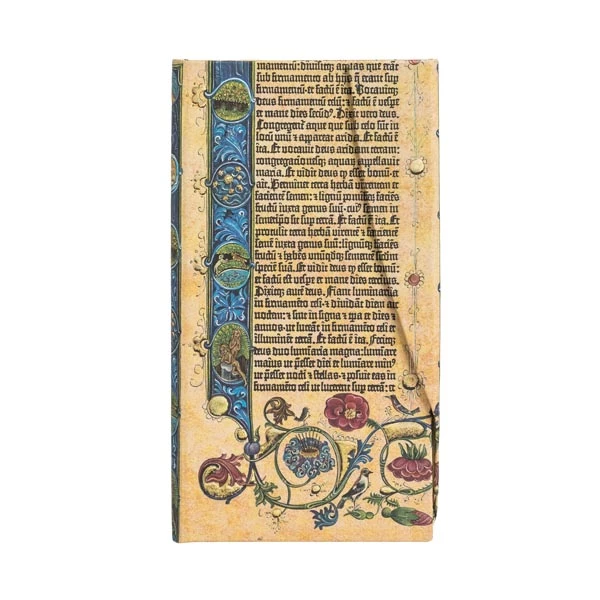 namentū: divisitqꝫ aquas que erāt
sub firmamento ab hijs q̄ erant sup
firmamentū: et factū ē ita. Vocavitqꝫ
deus firmamentū celū: ⁊ factū ē vespe
et mane dies secūdꝰ. Dixit vero deus.
Congregent̄ aque que sub celo sūt in
locū unū ⁊ appareat arida. Et factū ē
ita. Et vocavit deus aridam terram:
congregacionesqꝫ aquarū appellavit
maria. Et vidit deus qꝫ esset bonū: et
ait. Germinet terra herbā virentem et
facientē semen: ⁊ lignū pomifeꝝ faciēs
fructū iuxta genus suū: cuiꝰ semen in
semetipō sit sup terrā. Et factū ē ita. Et
protulit terra herbā virentē ⁊ facientē
semē iuxta genus suū: lignūqꝫ faciēs
fructū ⁊ habēs unūqdqꝫ sementē scd̄m
speciē suā. Et vidit deus qꝫ esset bonū:
et factū est vespe et mane dies tercius.
Dixitqꝫ autē deus. Fiant luminaria
in firmamēto celi· ⁊ dividāt diem ac
noctem: ⁊ sint in signa ⁊ tp̄a et dies ⁊
annos· ut luceāt in firmamēto celi et
illuminēt terrā. Et factū ē ita. Fecitqꝫ
deus duo luminaria magna: lumīare
maius ut p̄esset diei et lumīare minꝰ
ut p̄esset nocti ⁊ stellas· ⁊ posuit eas in
firmamēto celi ut lucerent sup terrā: et